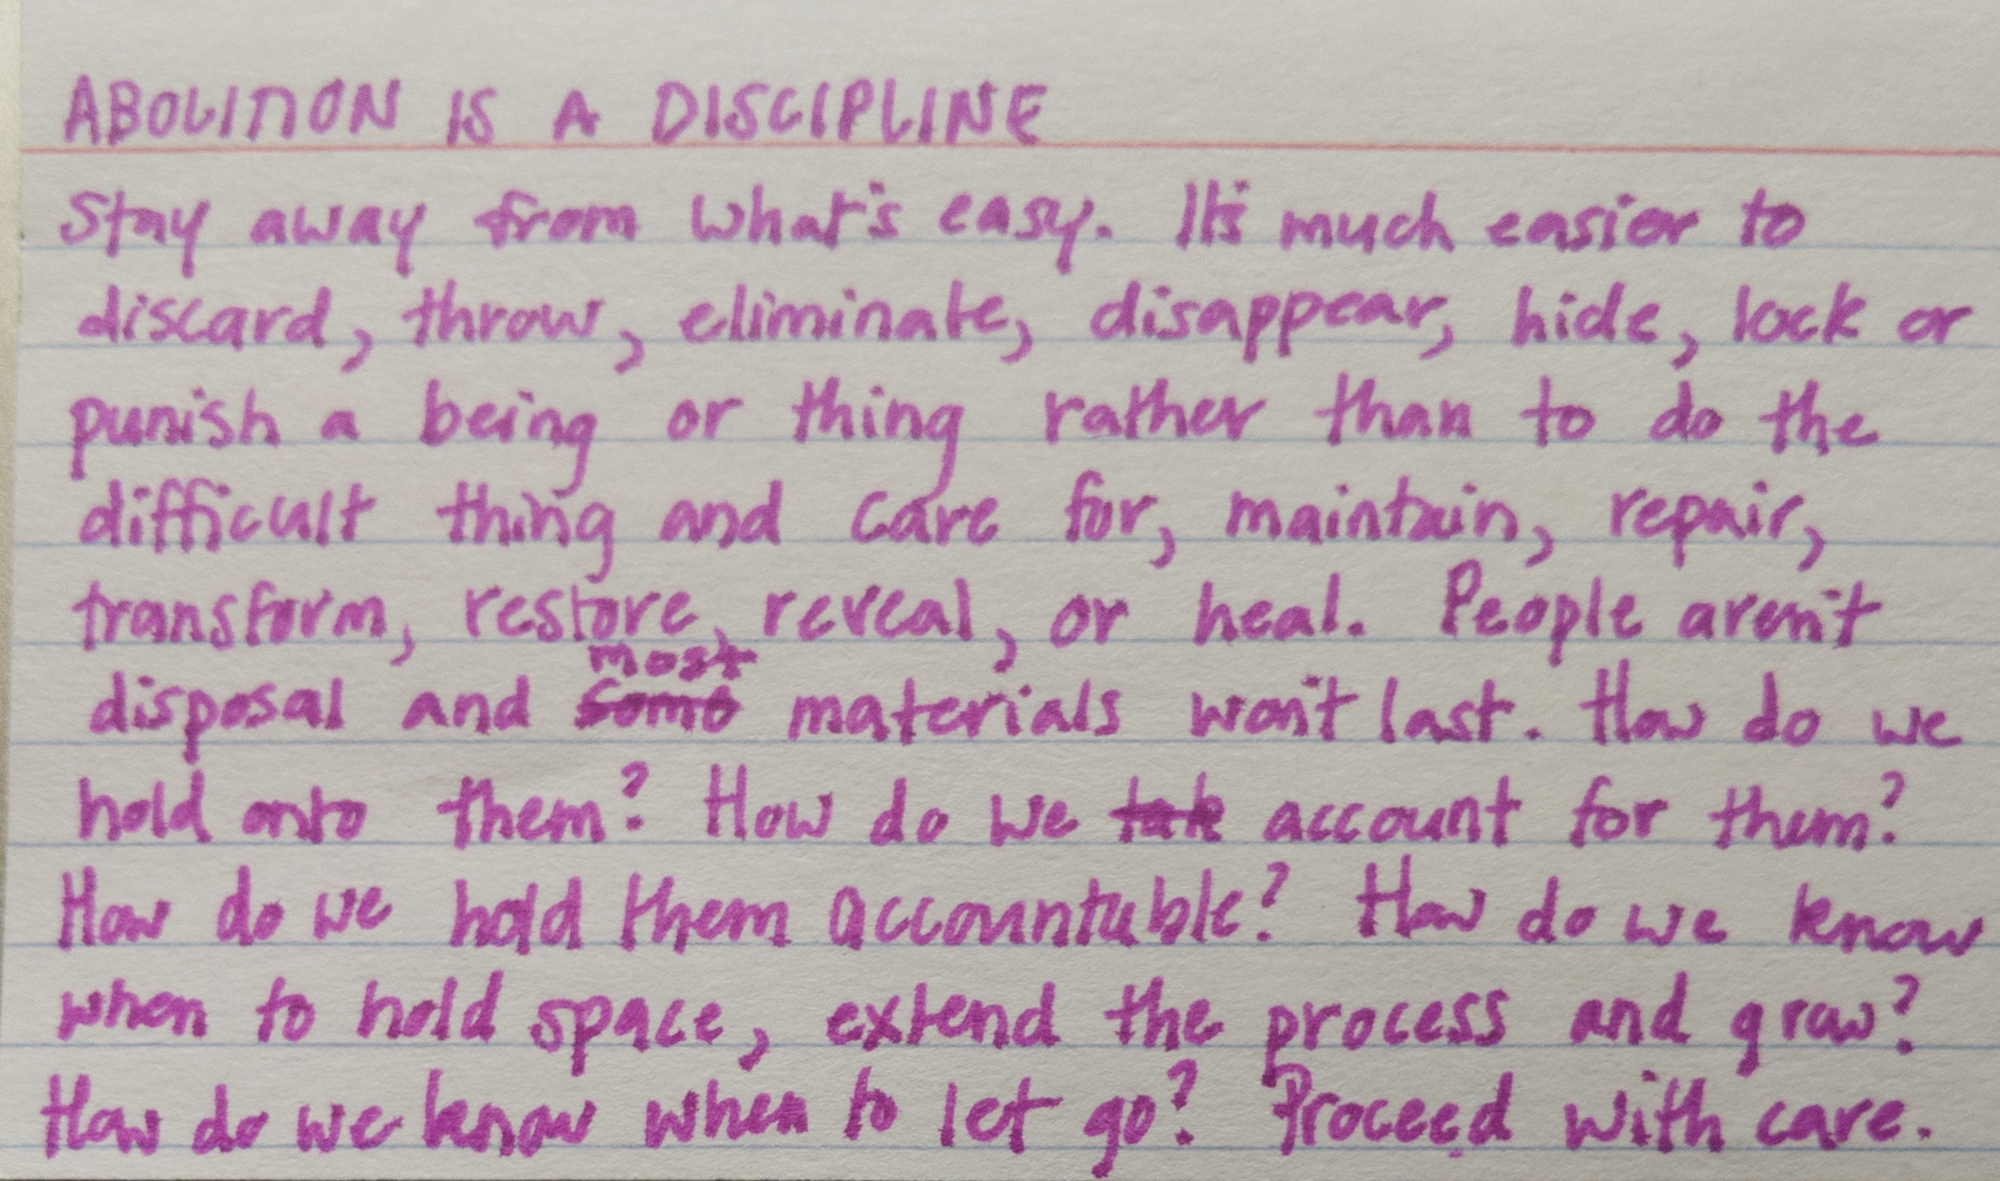 ABOLITION IS A DISCIPLINE
Stay away from what's easy. It's much easier to
discard, throw, eliminate, disappear, hide, lock or
punish a being or thing rather than to do the
difficult thing and care for, maintain, repair,
transform, restore, reveal, or heal. People aren't
most
disposal and some materials won't last. How do we
hold onto them? How do we tak account for them?
How do we hold them accountable? How do we know
when to hold space, extend the process and grow?
How do we know when to let go? Proceed with care.